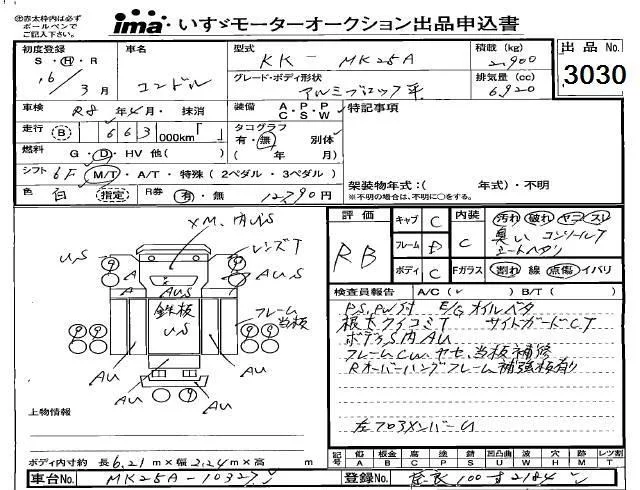 ◎赤太枠内は必ず
ボールペンで
ご記入ください。
ima いすゞモーターオークション出品申込書
初度登録 車名 型式 KK - MK25A 積載(kg) 2,900 出品No. 3030
S・H・R 16/3月 コンドル グレード・ボディ形状 アルミブロック 平 排気量(cc) 6,920
車検 R8年4月・抹消 装備 A・P・P C・S・W 特記事項
走行 B 663 000km「 」 タコグラフ 有・無 別体
燃料 G・D・HV 他( ) ( 年 月)
シフト 6F M/T・A/T・特殊(2ペダル・3ペダル)
架装物年式:( 年式)・不明
※不明の場合は、不明に○をする。
色 白 指定 R券 有・無 12,790円
評価 RB キャブ C 内装 C 汚れ 破れ ヤニ スレ
フレーム D 臭い コンソールT
シートヘタリ
ボディ C Fガラス 割れ 線 点傷 イバリ
検査員報告 A/C( ) B/T( )
P.S, P.W付 E/Gオイルベタ
根太クイコミT サイドガードC.T
ボディS内AU
フレームC.W. ヤセ、当板補修
Rオーバーハングフレーム補強板有り
左フロアメンバーU
XM、内U.S
U.S
レンズT
A
A
A
AU.S
AU.S
鉄板
U.S
フレーム
当板
AU
AU
AU
AU
上物情報
ボディ内寸約 長6.21m×幅2.24m×高 m
記号 傷 A 板金 B 腐 C 塗 P 錆 S 凹凸曲 U 波 W 穴 H 跡 M レツ割 T
車台No. MK25A-10327 登録No. 奈良100す2184